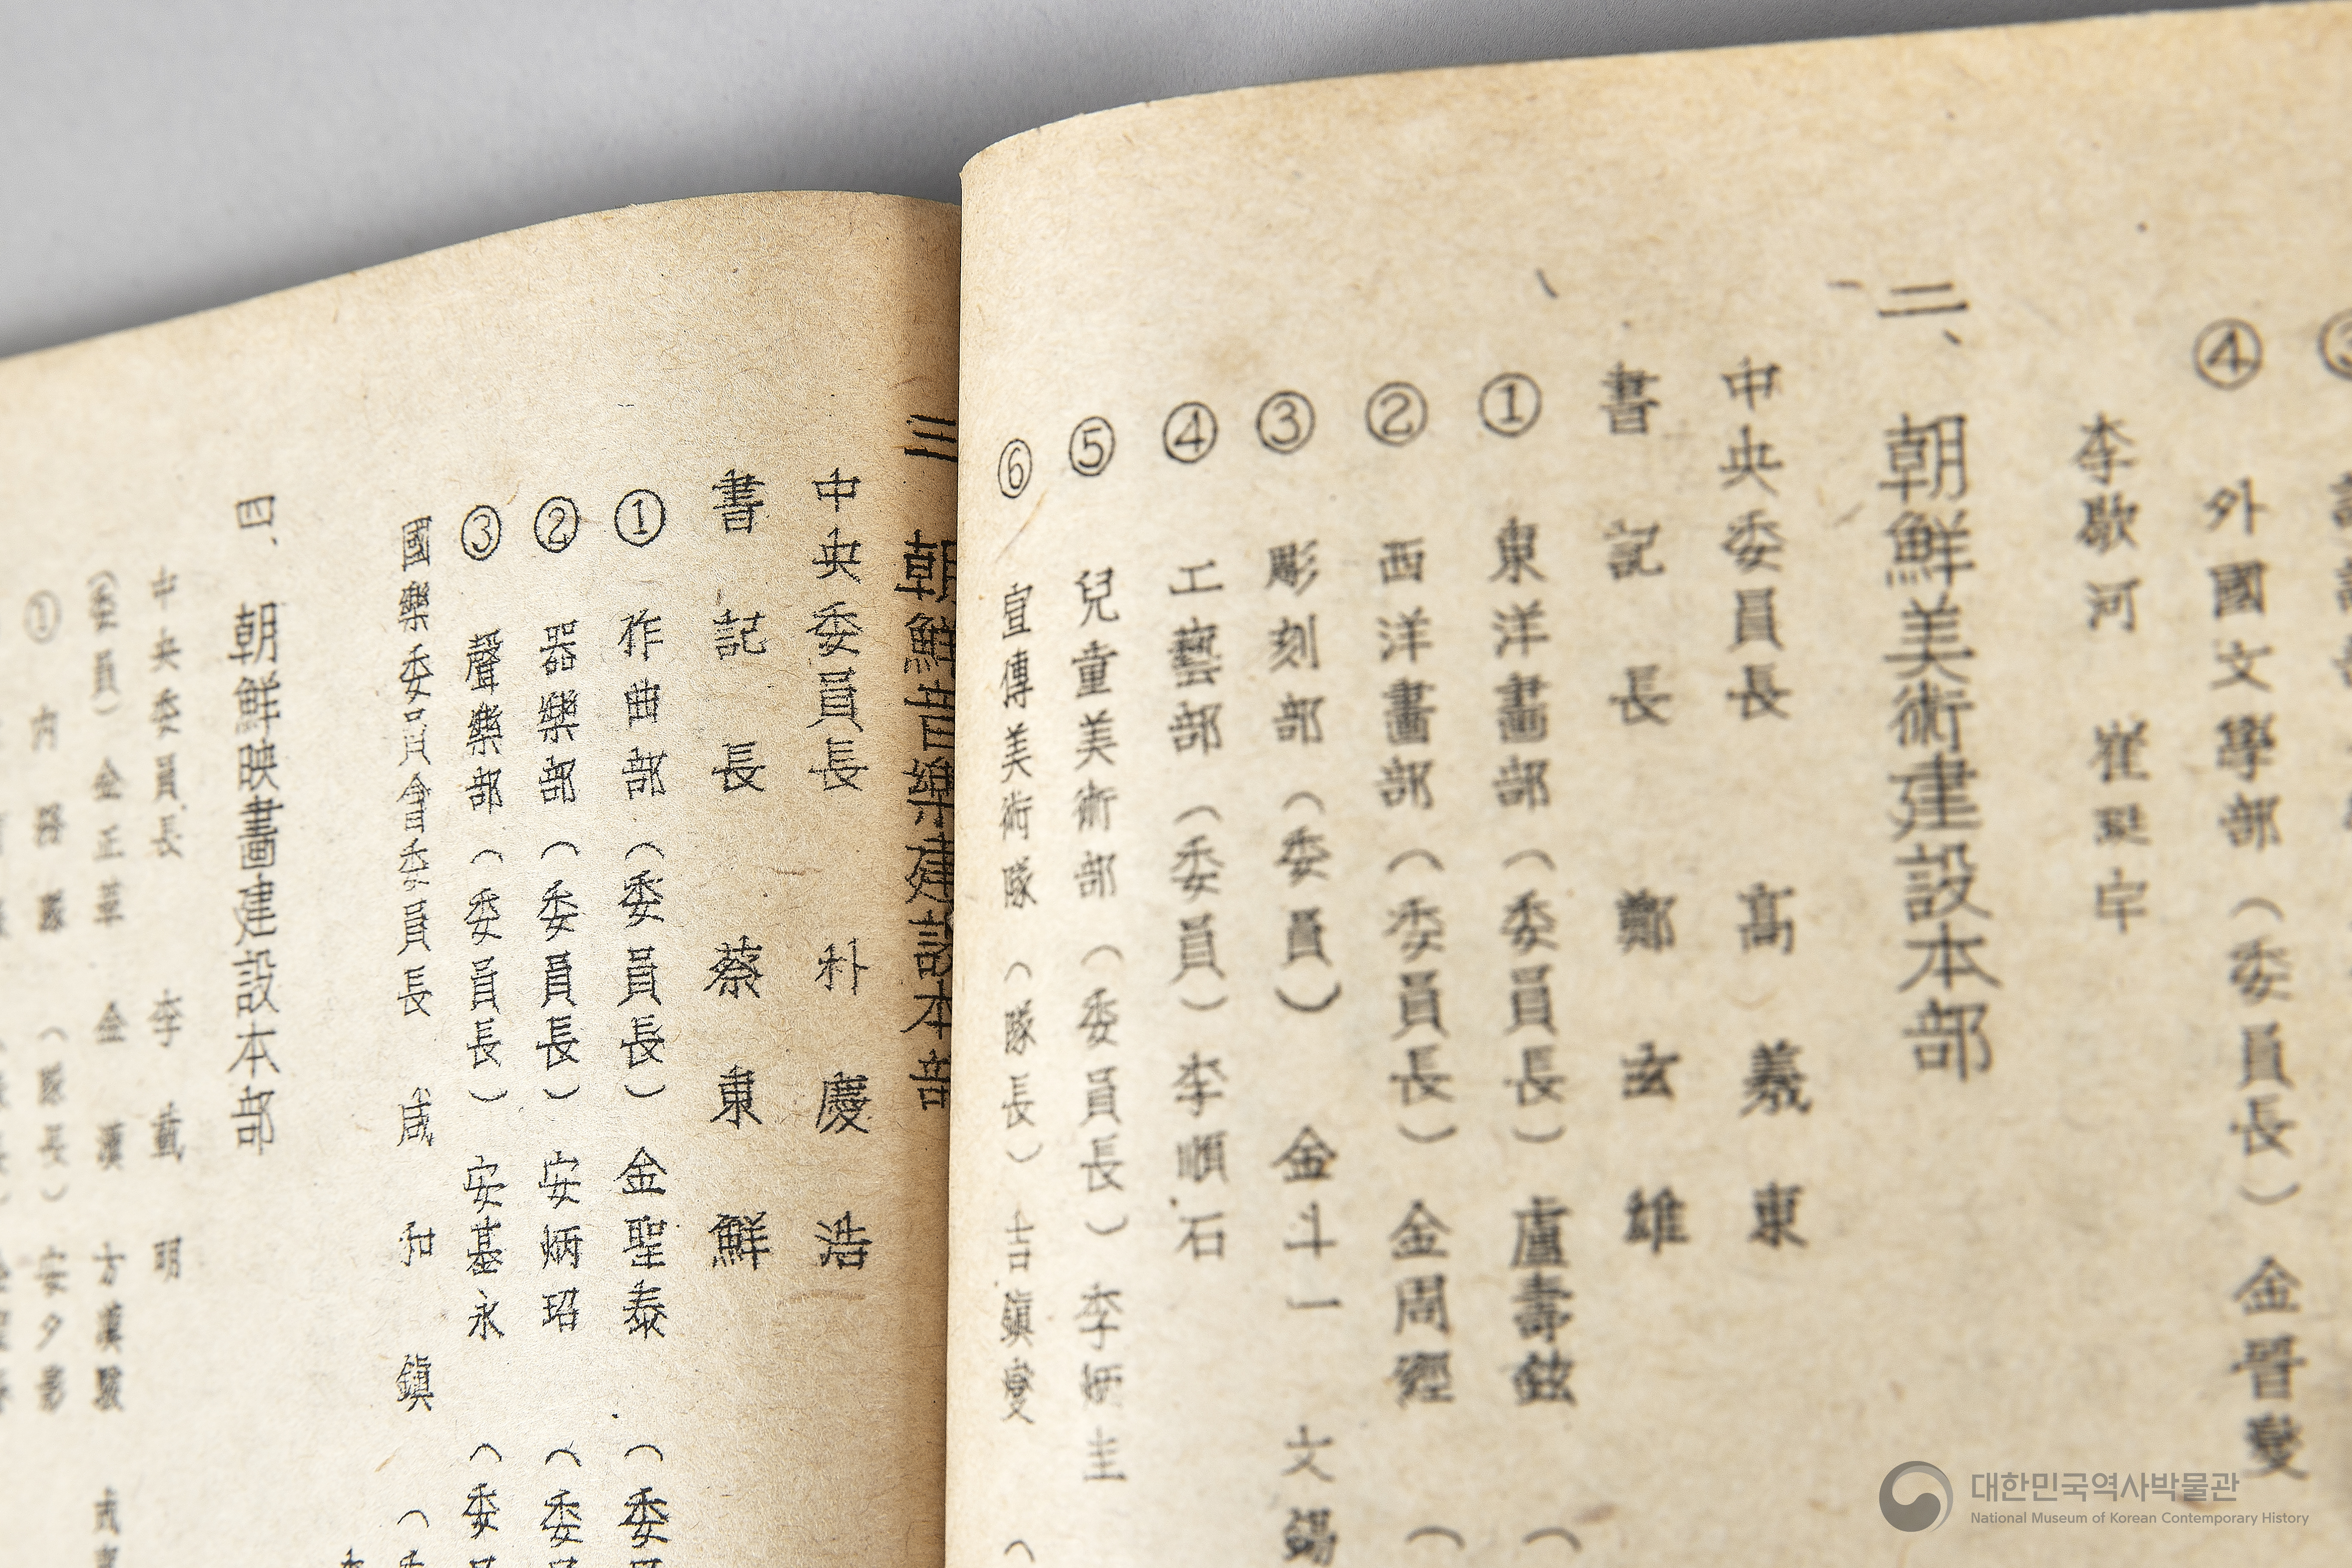 ④ 外國文學部（委員長）金晋燮
李歇河 崔珽宇
二、朝鮮美術建設本部
中央委員長 高羲東
書記長 鄭玄雄
① 東洋畵部（委員長）盧壽鉉（
② 西洋畵部（委員長）金周經（
③ 彫刻部（委員）金斗一 文錫
④ 工藝部（委員）李順石
⑤ 兒童美術部（委員長）李炳圭
⑥ 宣傳美術隊（隊長）吉鎭燮（
三 朝鮮音樂建設本部
中央委員長 朴慶浩
書記長 蔡東鮮
① 作曲部（委員長）金聖泰（委員
② 器樂部（委員長）安炳昭（委員
③ 聲樂部（委員長）安基永（委員
國樂委員會委員長 咸和鎭（委
四、朝鮮映畵建設本部
中央委員長 李載明
（委員）金正革 金漢 方漢駿
（隊長）安夕影
대한민국역사박물관
National Museum of Korean Contemporary History